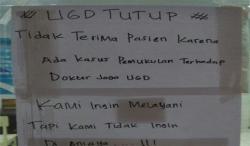 UGD TUTUP
Tidak Terima Pasien Karena
Ada Kasus Pemukulan Terhadap
Dokter Jaga UGD
Kami Ingin Melayani
Tapi Kami Tidak Ingin
Di Aniaya !!!